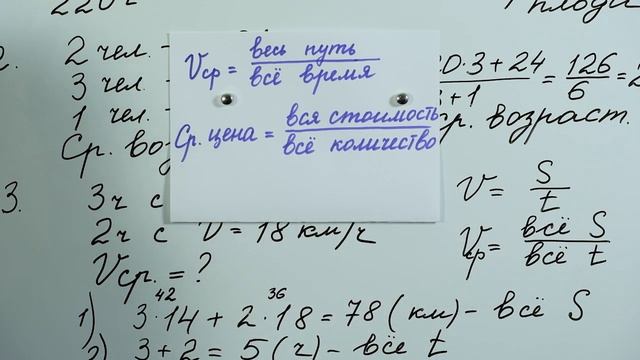 220 г
2 чел. -
3 чел.
1 чел.
Ср. воз
Vср = весь путь / всё время
Ср. цена = вся стоимость / всё количество
0·3+24 / 3+1 = 126 / 6 = 2
р. возраст.
3. 3ч с
2ч с V = 18 км/ч
Vср. = ?
V = S / t
Vср = всё S / всё t
42 36
1) 3·14 + 2·18 = 78 (км) - всё S
2) 3+2 = 5 (ч) - всё t